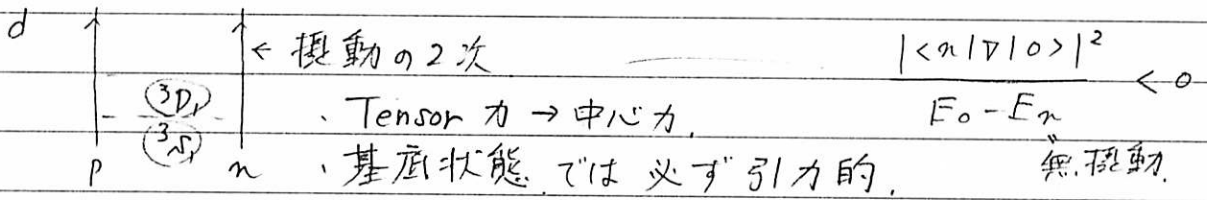 d
← 摂動の2次
|<n|V|0>|²
E₀-Eₙ
< 0
³D₁
・Tensor 力 → 中心力.
³S₁
・基底状態では 必ず 引力的.
無摂動.
p n